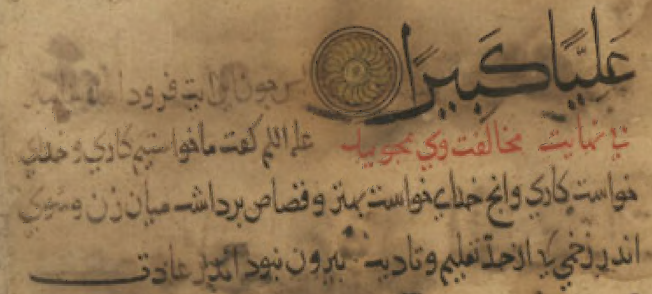 عَلِيًّا كَبِيرًا پس چون این ایت فرود
نی نهایت مخالفت وی مجویید علیه السلم کفت ما خواستیم کاری و خدای
خواست کاری وانج خدای خواست بهتر و قصاص برداشت میان زن و شوی
اندر زخمی که از حد تعلیم و تادیب بیرون نبود اندر عادت